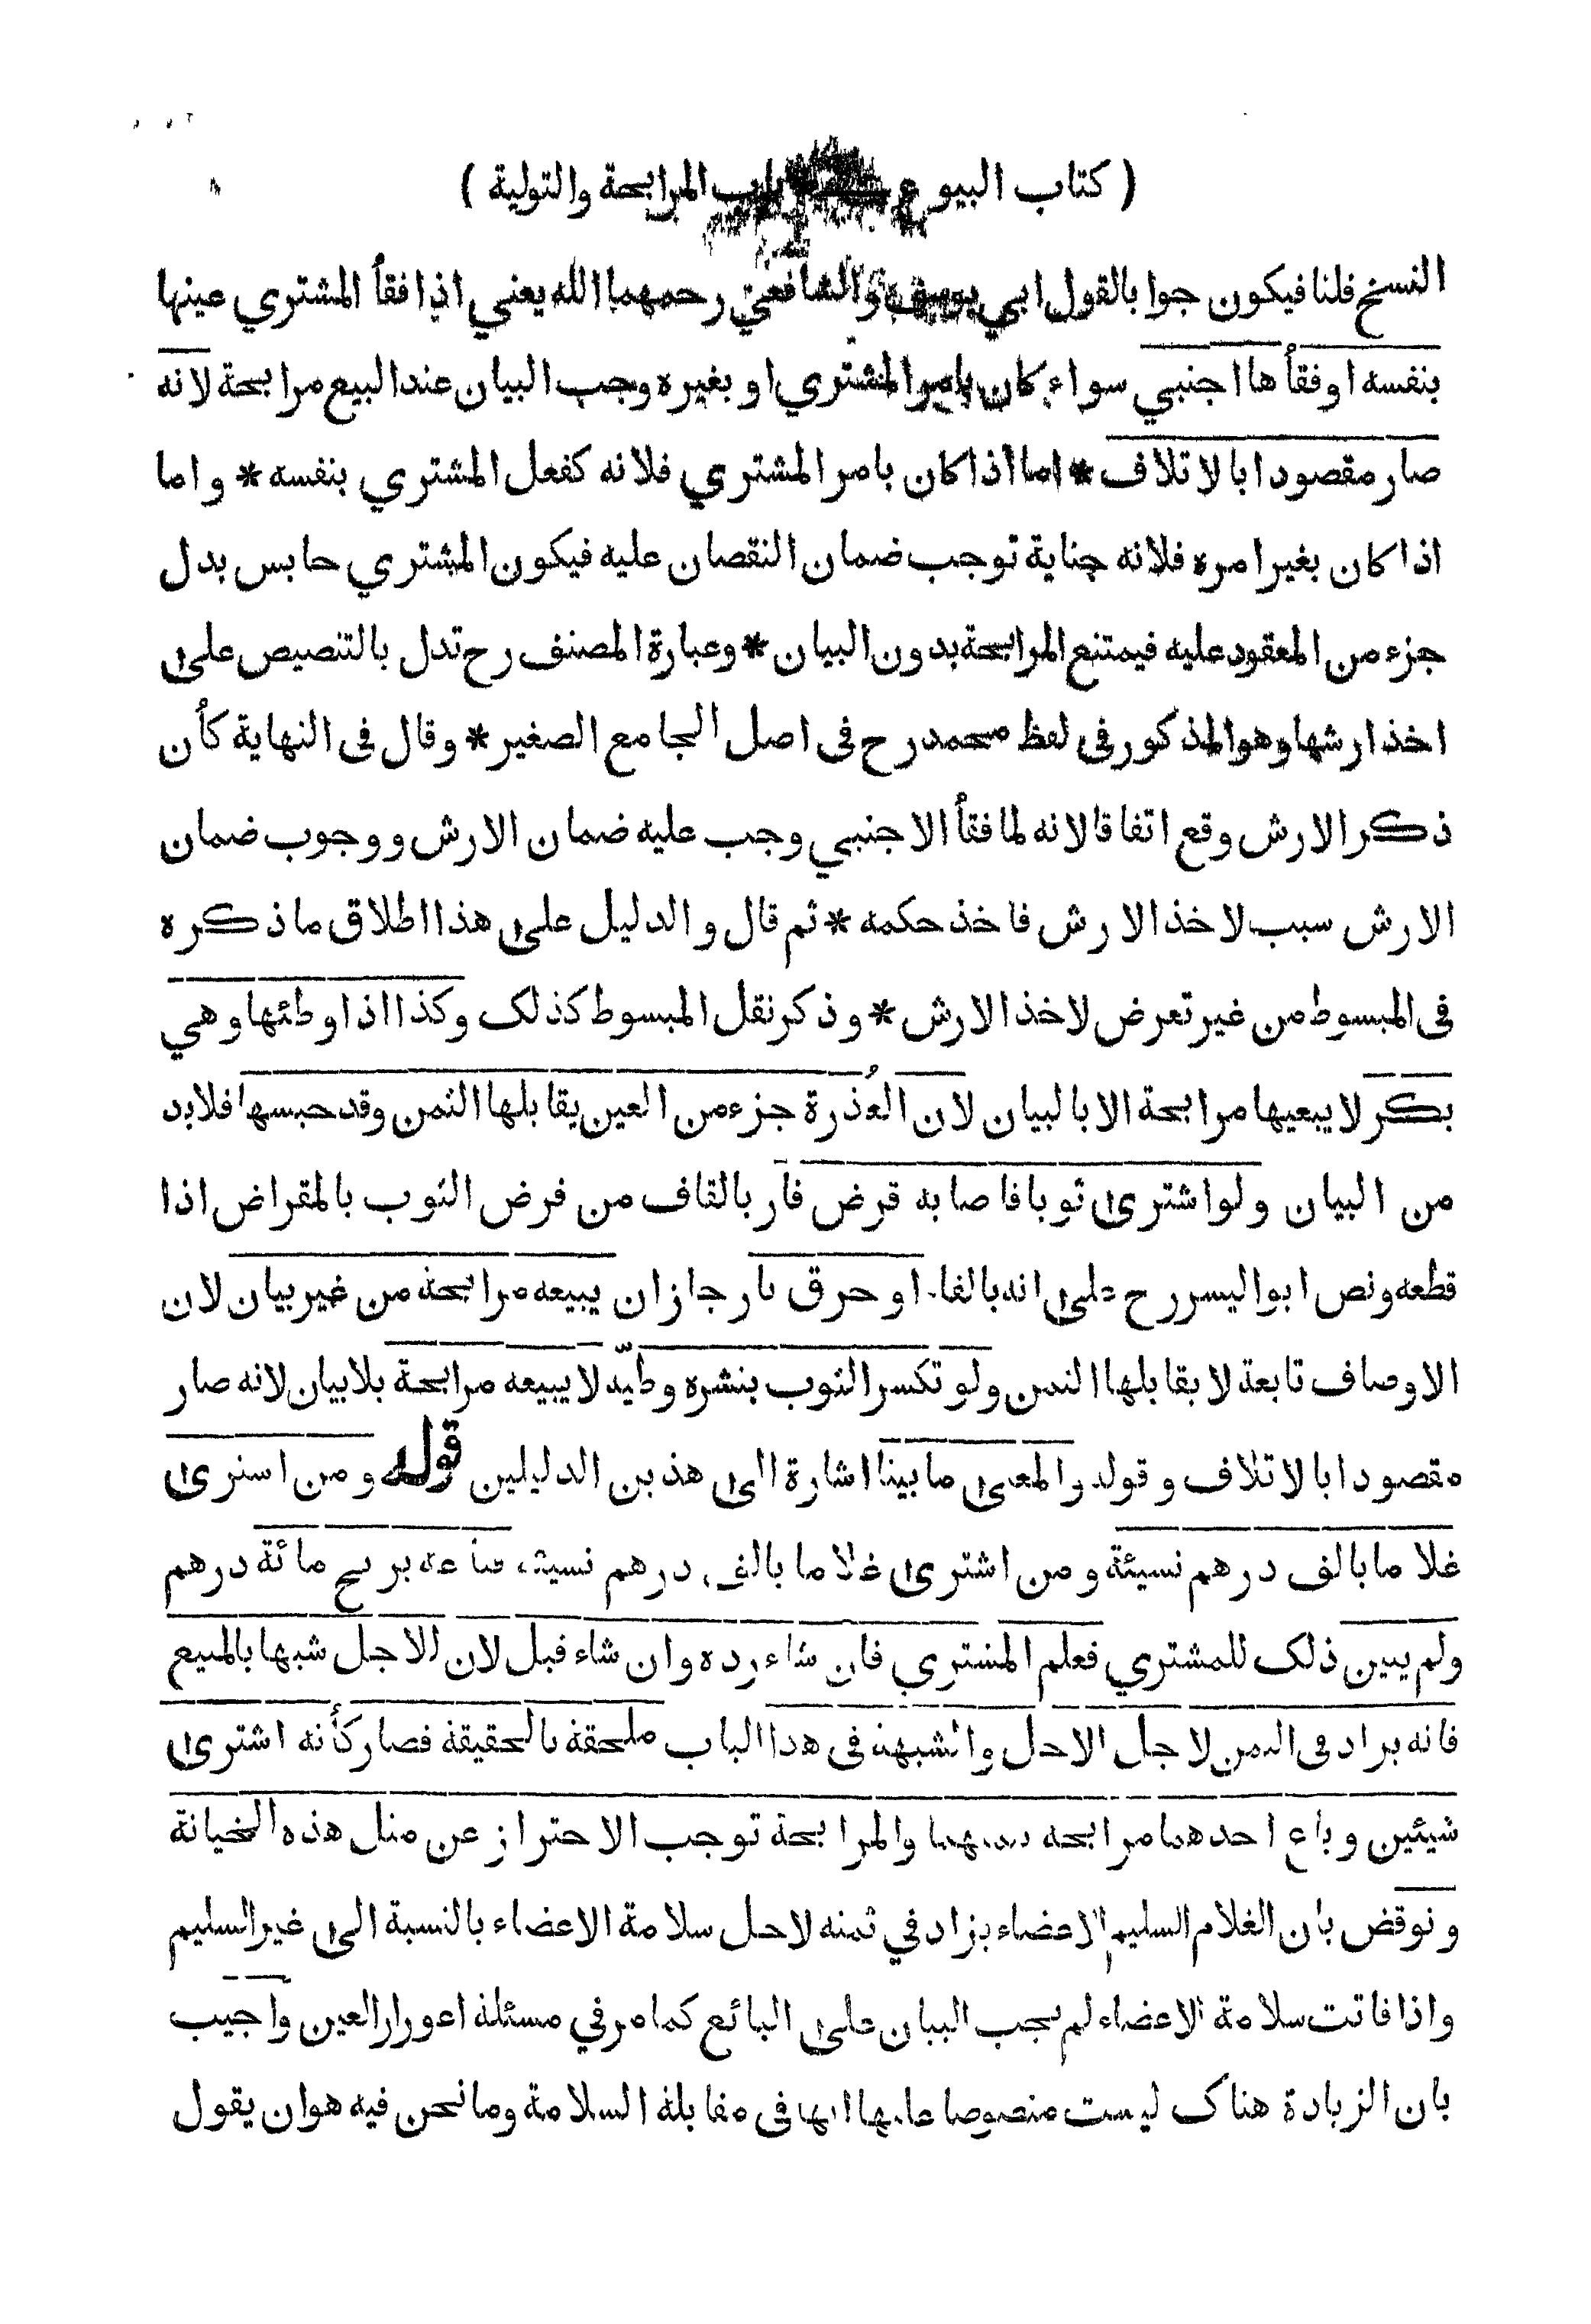 ( كتاب البيوع باب المرابحة والتولية )
النسخ فلنا فيكون جوابا لقول ابي يوسف والشافعي رحمهما الله يعني اذا فقأ المشتري عينها
بنفسه او فقأها اجنبي سواء كان بامر المشتري او بغيره وجب البيان عند البيع مرابحة لانه
صار مقصودا بالاتلاف * اما اذا كان بامر المشتري فلانه كفعل المشتري بنفسه * واما
اذا كان بغير امره فلانه جناية توجب ضمان النقصان عليه فيكون المشتري حابس بدل
جزء من المعقود عليه فيمتنع المرابحة بدون البيان * وعبارة المصنف رح تدل بالتنصيص على
اخذ ارشها وهو المذكور في لفظ محمد رح في اصل الجامع الصغير * وقال في النهاية كأن
ذكر الارش وقع اتفاقا لانه لما فقأ الاجنبي وجب عليه ضمان الارش ووجوب ضمان
الارش سبب لاخذ الارش فاخذ حكمه * ثم قال والدليل على هذا اطلاق ما ذكره
في المبسوط من غير تعرض لاخذ الارش * وذكر نقل المبسوط كذلك وكذا اذا وطئها وهي
بكر لا يبعيها مرابحة الا بالبيان لان العُذرة جزء من العين يقابلها الثمن وقد حبسها فلابد
من البيان ولو اشترى ثوبا فاصابه قرض فار بالقاف من فرض الثوب بالمقراض اذا
قطعه ونص ابو اليسر رح على انه بالفاء او حرق نار جاز ان يبيعه مرابحة من غير بيان لان
الاوصاف تابعة لا يقابلها الثمن ولو تكسر الثوب بنشره وطيّه لا يبيعه مرابحة بلا بيان لانه صار
مقصودا بالاتلاف وقوله والمعنى ما بينا اشارة الى هذين الدليلين قوله ومن اشترى
غلاما بالف درهم نسيئة ومن اشترى غلاما بالف درهم نسيئة فباعه بربح مائة درهم
ولم يبين ذلك للمشتري فعلم المشتري فان شاء رده وان شاء قبل لان للاجل شبها بالمبيع
فانه يزاد في الثمن لاجل الاجل والشبهة في هذا الباب ملحقة بالحقيقة فصار كأنه اشترى
شيئين وباع احدهما مرابحة بثمنهما والمرابحة توجب الاحتراز عن مثل هذه الخيانة
ونوقض بان الغلام السليم الاعضاء يزاد في ثمنه لاجل سلامة الاعضاء بالنسبة الى غير السليم
واذا فاتت سلامة الاعضاء لم يجب البيان على البائع كما مر في مسئلة اعورار العين واجيب
بان الزيادة هناك ليست منصوصا عليها انها في مقابلة السلامة وما نحن فيه هو ان يقول